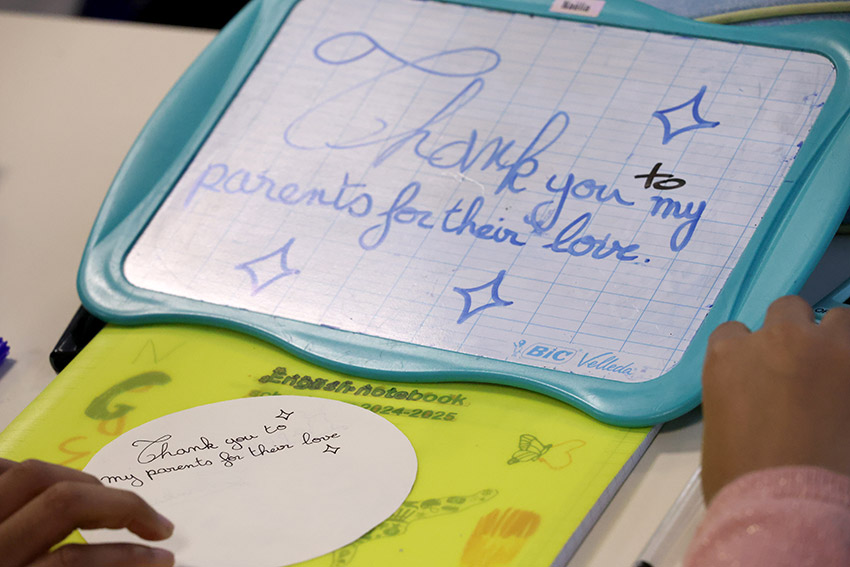 Naëlia
Thank you to my
parents for their love.
BIC Velleda
English notebook
2024-2025
Thank you to
my parents for their love